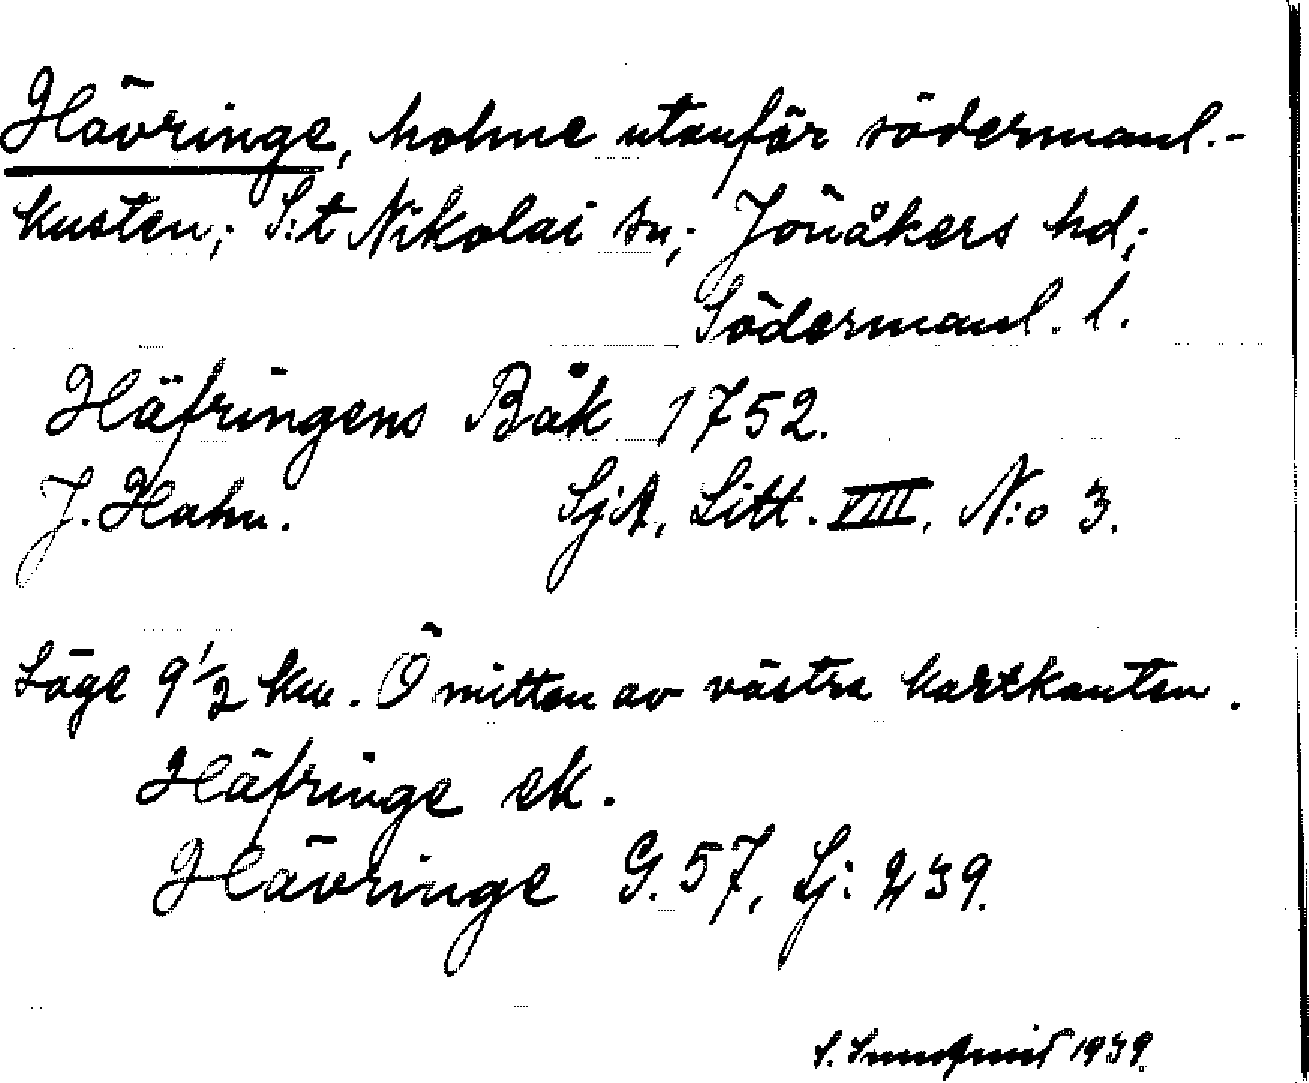 Hävringe, holme utanför södermanl.-
kusten; S:t Nikolai sn; Jönåkers hd;
Södermanl. l.
Häfringens Båk 1752.
J. Hahn. SjA, Litt. VIII, N:o 3.
Läge 9 1/2 km. Ö mitten av västra kartkanten.
Häfringe ek.
Hävringe G. 57, Sj: 239.
1939